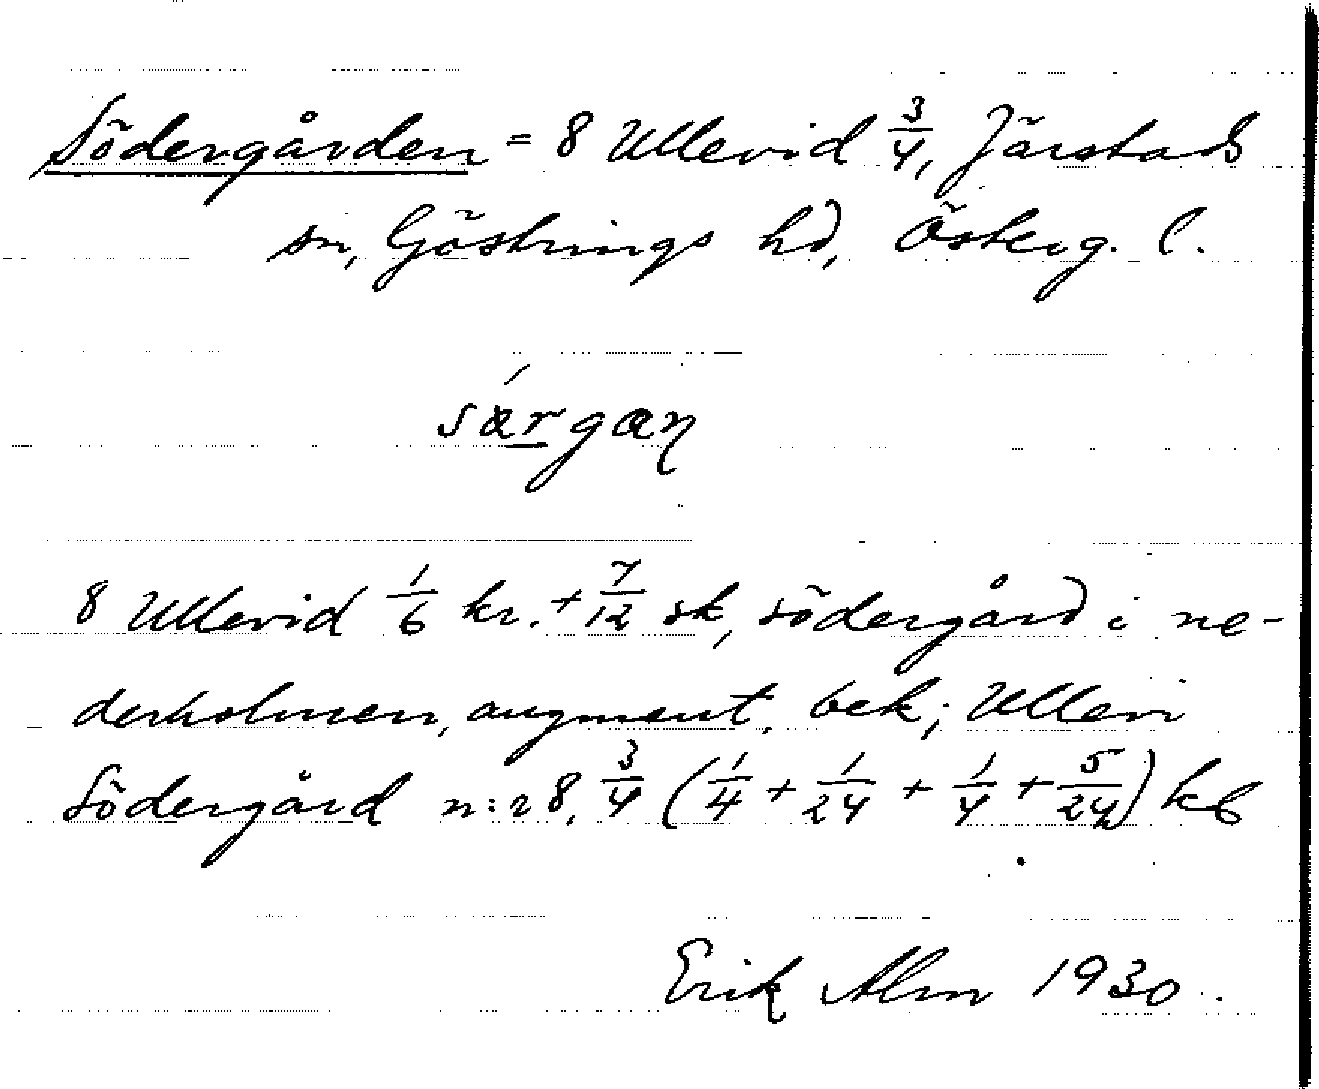 Södergården = 8 Ullevid 3/4, Järstads
sn, Göstrings hd, Österg. l.
sárgaη
8 Ullevid 1/6 kr. + 7/12 sk, södergård i ne-
derholmen, augment, bek; Ullevi
Södergård n:r 8, 3/4 (1/4 + 1/24 + 1/4 + 5/24)
Erik Alm 1930.